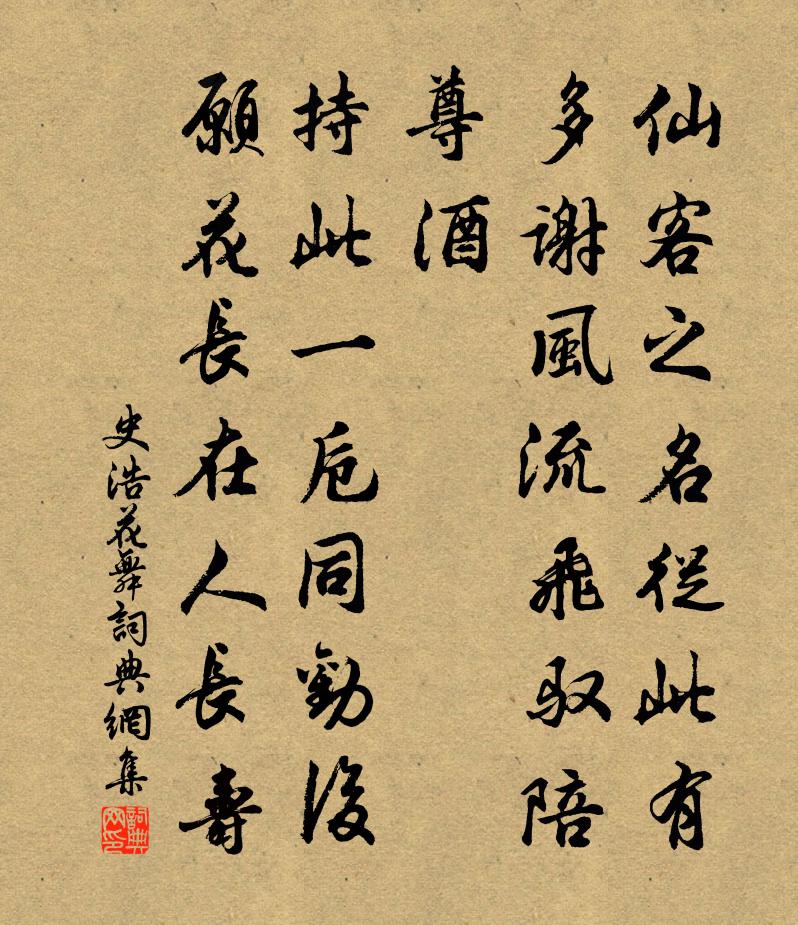 仙客之名從此有
多謝風流飛馭陪
尊酒
持此一卮同勸後
願花長在人長壽
史浩花舞詞典網集
詞典網印